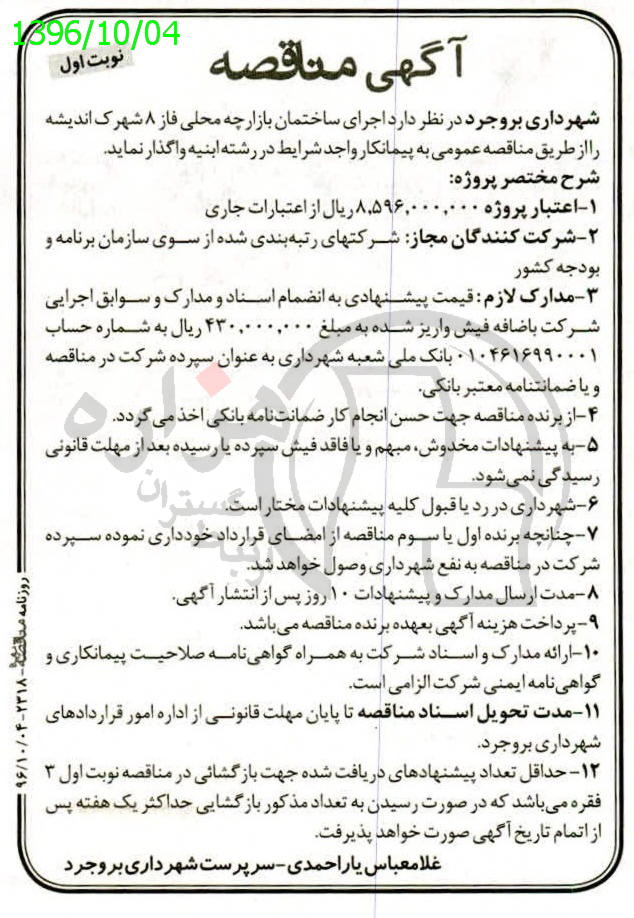 1396/10/04
آگهی مناقصه
نوبت اول
شهرداری بروجرد در نظر دارد اجرای ساختمان بازارچه محلی فاز ۸ شهرک اندیشه
رااز طریق مناقصه عمومی به پیمانکار واجد شرایط در رشته ابنیه واگذار نماید.
شرح مختصر پروژه:
۱-اعتبار پروژه ۸,۵۹۶,۰۰۰,۰۰۰ ریال از اعتبارات جاری
۲-شرکت کنندگان مجاز: شرکتهای رتبه‌بندی شده از سوی سازمان برنامه و
بودجه کشور
۳-مدارک لازم: قیمت پیشنهادی به انضمام اسناد و مدارک و سوابق اجرایی
شرکت باضافه فیش واریز شده به مبلغ ۴۳۰,۰۰۰,۰۰۰ ریال به شماره حساب
۰۱۰۴۶۱۶۹۹۰۰۰۱ بانک ملی شعبه شهرداری به عنوان سپرده شرکت در مناقصه
و یا ضمانتنامه معتبر بانکی.
۴-از برنده مناقصه جهت حسن انجام کار ضمانت‌نامه بانکی اخذ می گردد.
۵-به پیشنهادات مخدوش، مبهم و یا فاقد فیش سپرده یا رسیده بعد از مهلت قانونی
رسیدگی نمی‌شود.
۶-شهرداری در رد یا قبول کلیه پیشنهادات مختار است.
۷-چنانچه برنده اول یا سوم مناقصه از امضای قرارداد خودداری نموده سپرده
شرکت در مناقصه به نفع شهرداری وصول خواهد شد.
۸-مدت ارسال مدارک و پیشنهادات ۱۰ روز پس از انتشار آگهی.
۹-پرداخت هزینه آگهی بعهده برنده مناقصه می‌باشد.
۱۰-ارائه مدارک و اسناد شرکت به همراه گواهی‌نامه صلاحیت پیمانکاری و
گواهی‌نامه ایمنی شرکت الزامی است.
۱۱-مدت تحویل اسناد مناقصه تا پایان مهلت قانونی از اداره امور قراردادهای
شهرداری بروجرد.
۱۲- حداقل تعداد پیشنهادهای دریافت شده جهت بازگشائی در مناقصه نوبت اول ۳
فقره می‌باشد که در صورت رسیدن به تعداد مذکور بازگشایی حداکثر یک هفته پس
از اتمام تاریخ آگهی صورت خواهد پذیرفت.
غلامعباس یاراحمدی-سرپرست شهرداری بروجرد
روزنامه مناقصه-۲۳۱۸-۹۶/۱۰/۰۴
هزاره
گستران